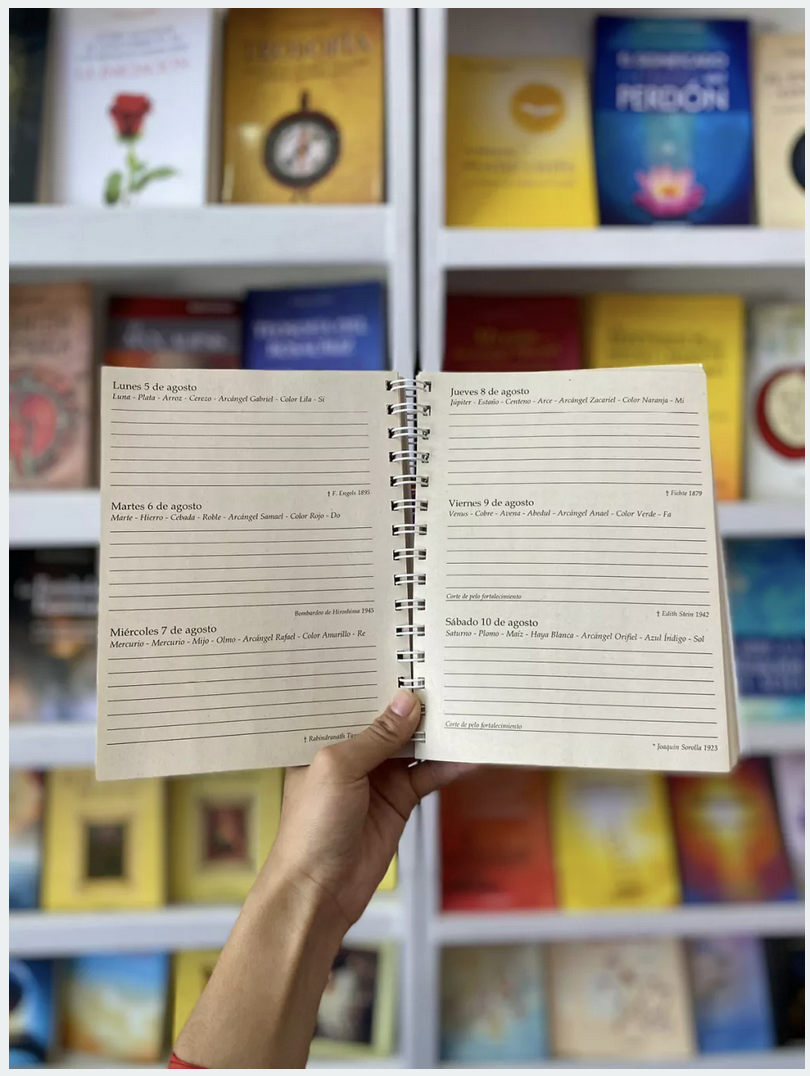 PERDÓN
Lunes 5 de agosto
Luna - Plata - Arroz - Cerezo - Arcángel Gabriel - Color Lila - Si
† F. Engels 1895
Martes 6 de agosto
Marte - Hierro - Cebada - Roble - Arcángel Samael - Color Rojo - Do
Bombardeo de Hiroshima 1945
Miércoles 7 de agosto
Mercurio - Mercurio - Mijo - Olmo - Arcángel Rafael - Color Amarillo - Re
† Rabindranath
Jueves 8 de agosto
Júpiter - Estaño - Centeno - Arce - Arcángel Zacariel - Color Naranja - Mi
† Fichte 1879
Viernes 9 de agosto
Venus - Cobre - Avena - Abedul - Arcángel Anael - Color Verde - Fa
Corte de pelo fortalecimiento
† Edith Stein 1942
Sábado 10 de agosto
Saturno - Plomo - Maíz - Haya Blanca - Arcángel Orifiel - Azul Índigo - Sol
Corte de pelo fortalecimiento
* Joaquín Sorolla 1923